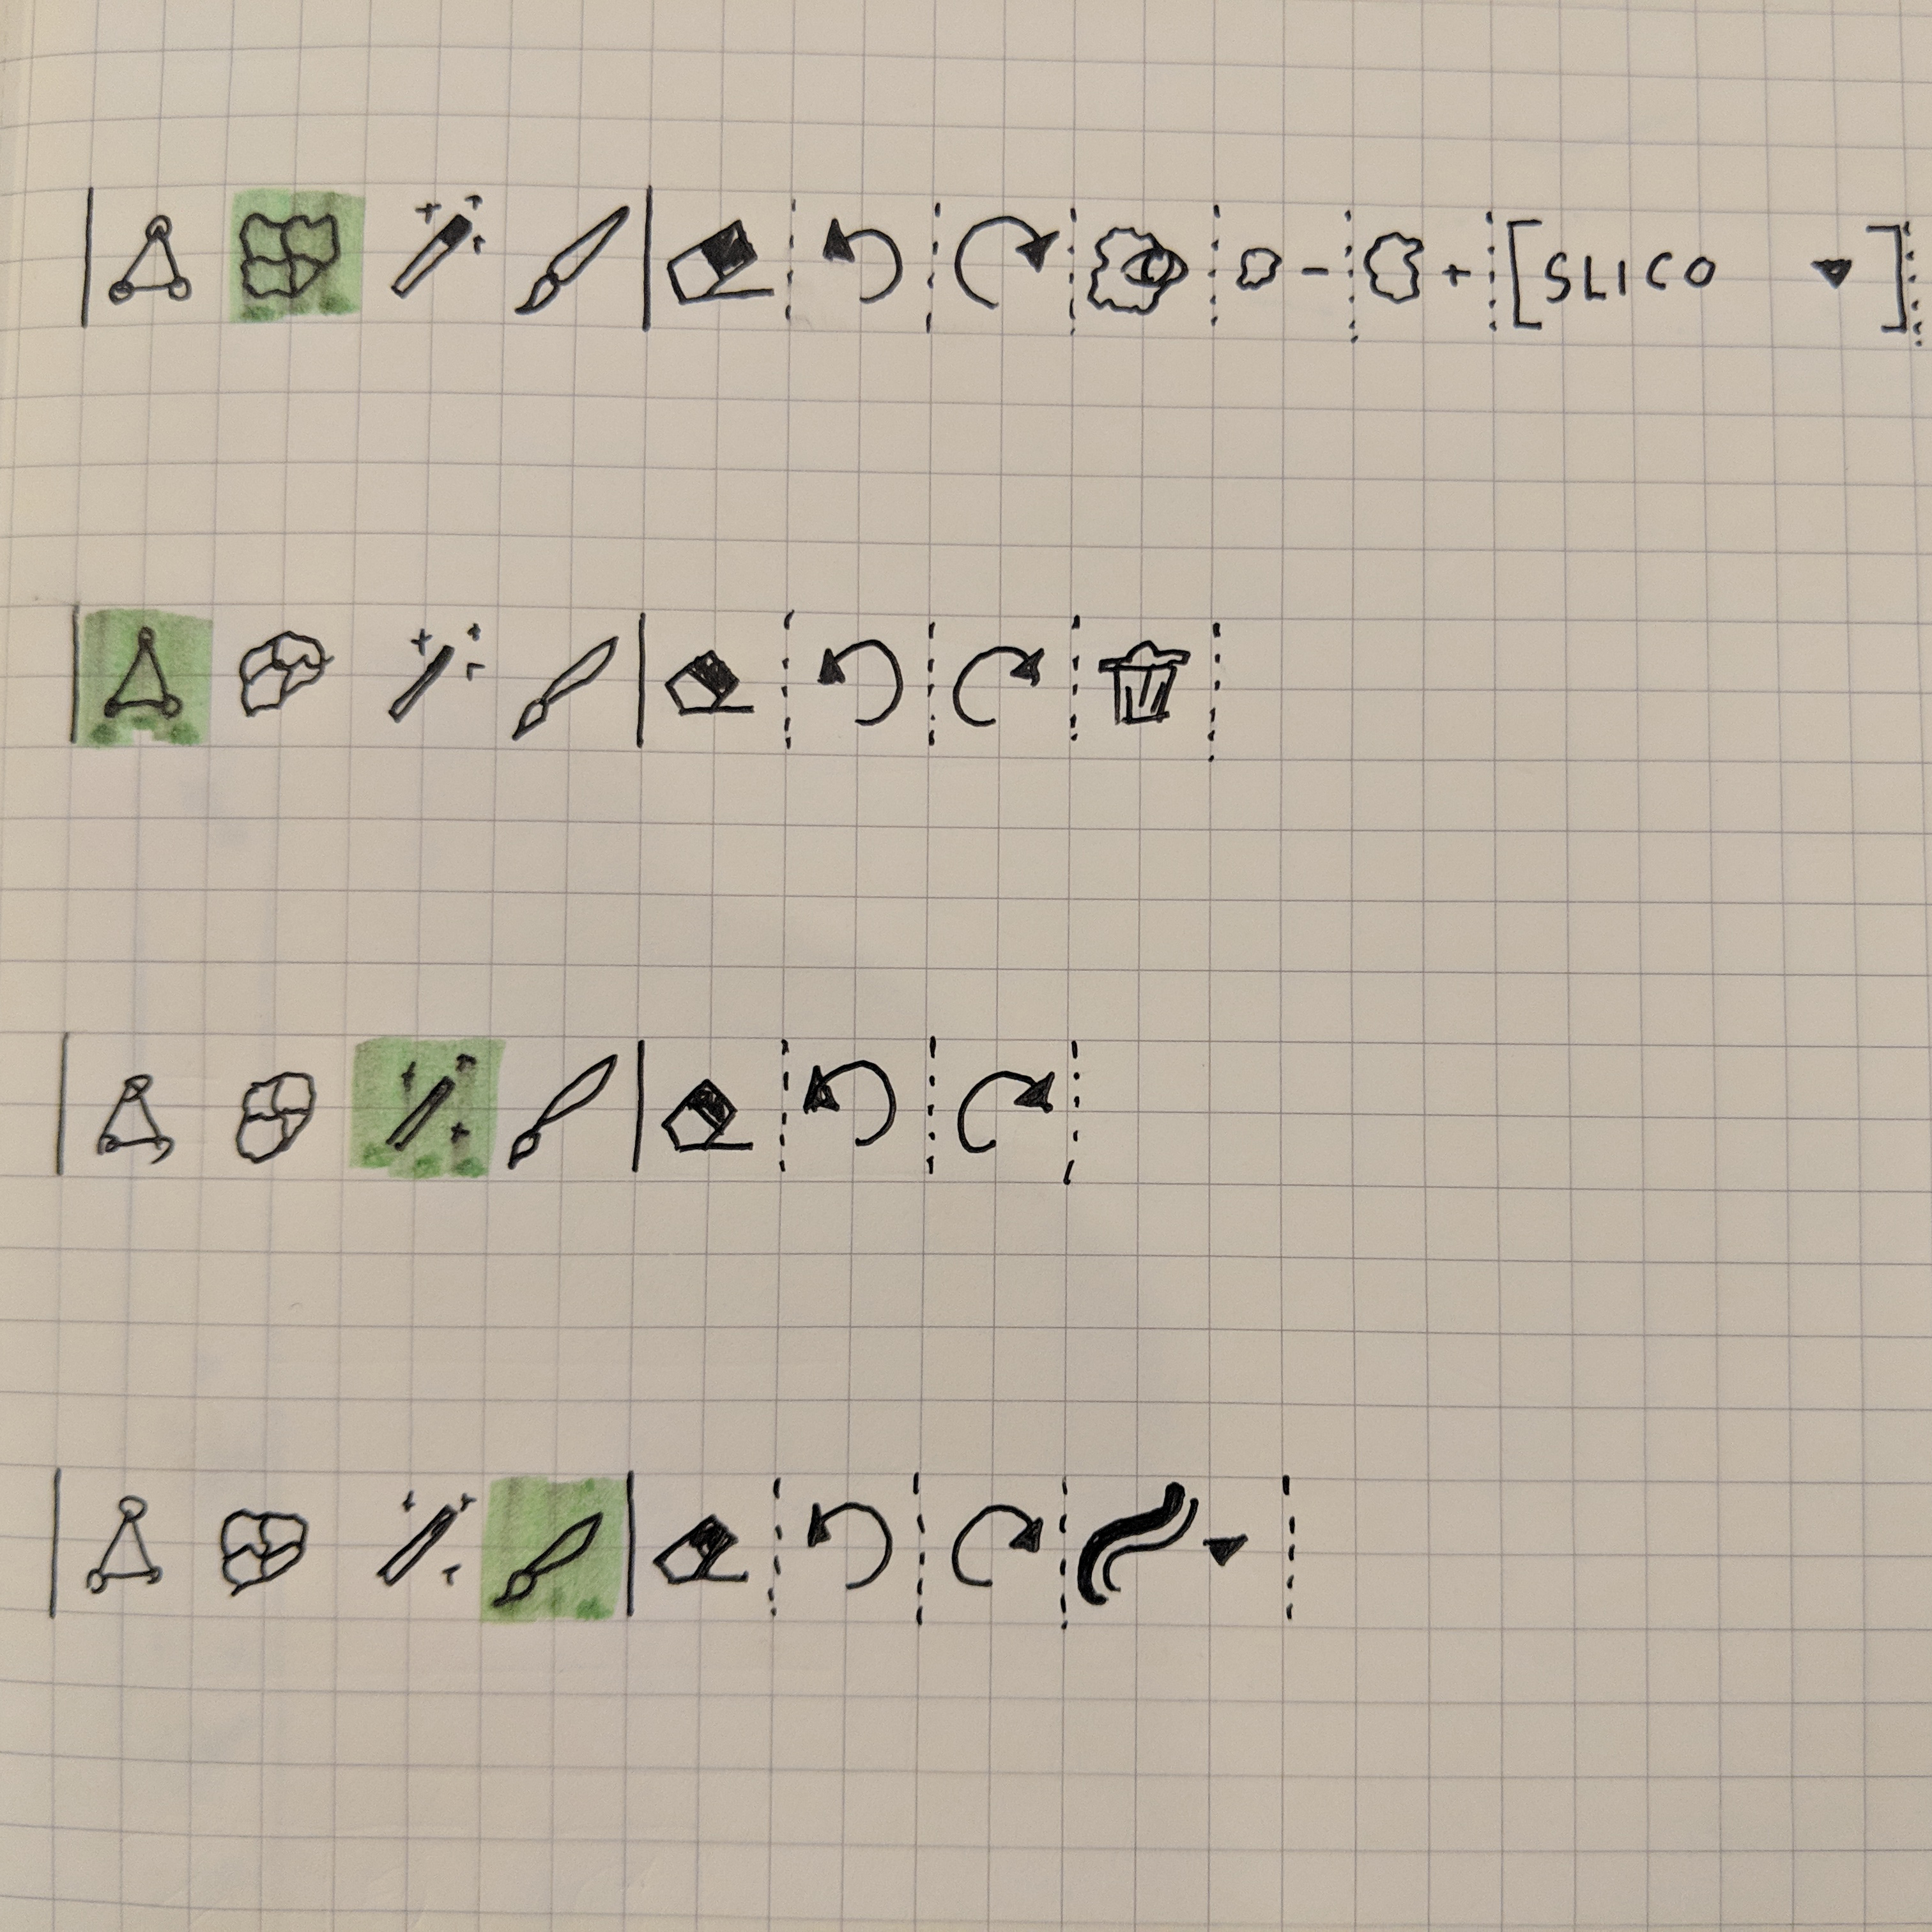 - + [SLICO ▾]